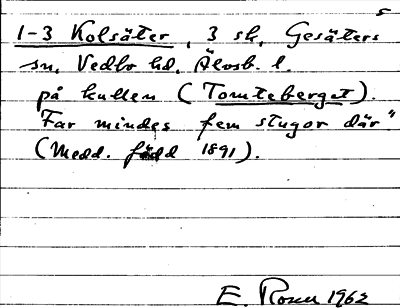 s
1-3 Kolsäter, 3 sk, Gesäters
sn, Vedbo hd, Älvsb. l.
på kullen (Tomteberget).
"Far mindes fem stugor där"
(Medd. född 1891).
E. Rosen 1962